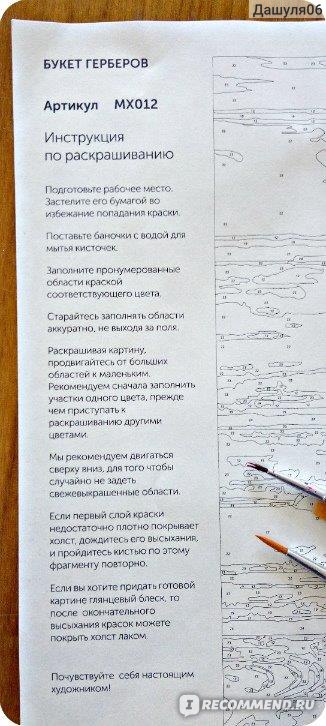 Дашуля06
БУКЕТ ГЕРБЕРОВ
Артикул МХ012
Инструкция
по раскрашиванию
Подготовьте рабочее место.
Застелите его бумагой во
избежание попадания краски.
Поставьте баночки с водой для
мытья кисточек.
Заполните пронумерованные
области краской
соответствующего цвета.
Старайтесь заполнять области
аккуратно, не выходя за поля.
Раскрашивая картину,
продвигайтесь от больших
областей к маленьким.
Рекомендуем сначала заполнить
участки одного цвета, прежде
чем приступать к
раскрашиванию другими
цветами.
Мы рекомендуем двигаться
сверху вниз, для того чтобы
случайно не задеть
свежевыкрашенные области.
Если первый слой краски
недостаточно плотно покрывает
холст, дождитесь его высыхания,
и пройдитесь кистью по этому
фрагменту повторно.
Если вы хотите придать готовой
картине глянцевый блеск, то
после окончательного
высыхания красок можете
покрыть холст лаком.
Почувствуйте себя настоящим
художником!
IRECOMMEND.RU